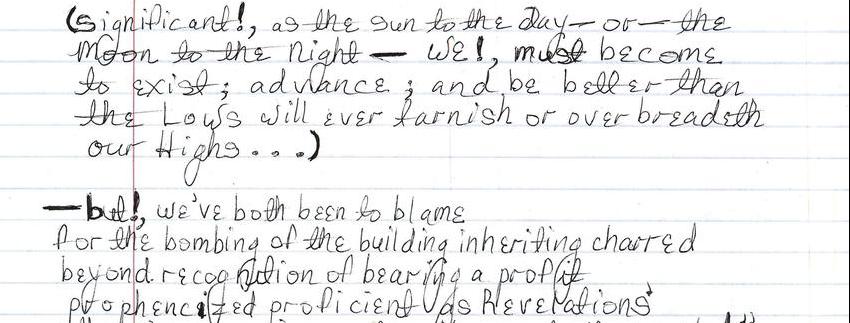 (significant!, as the sun to the day — or — the
moon to the night — WE!, must become
to exist; advance; and be better than
the Lows will ever tarnish or over breadeth
our Highs...)
—but!, we've both been to blame
for the bombing of the building inheriting charred
beyond recognition of bearing a profit
prophencized proficient as Revelations'